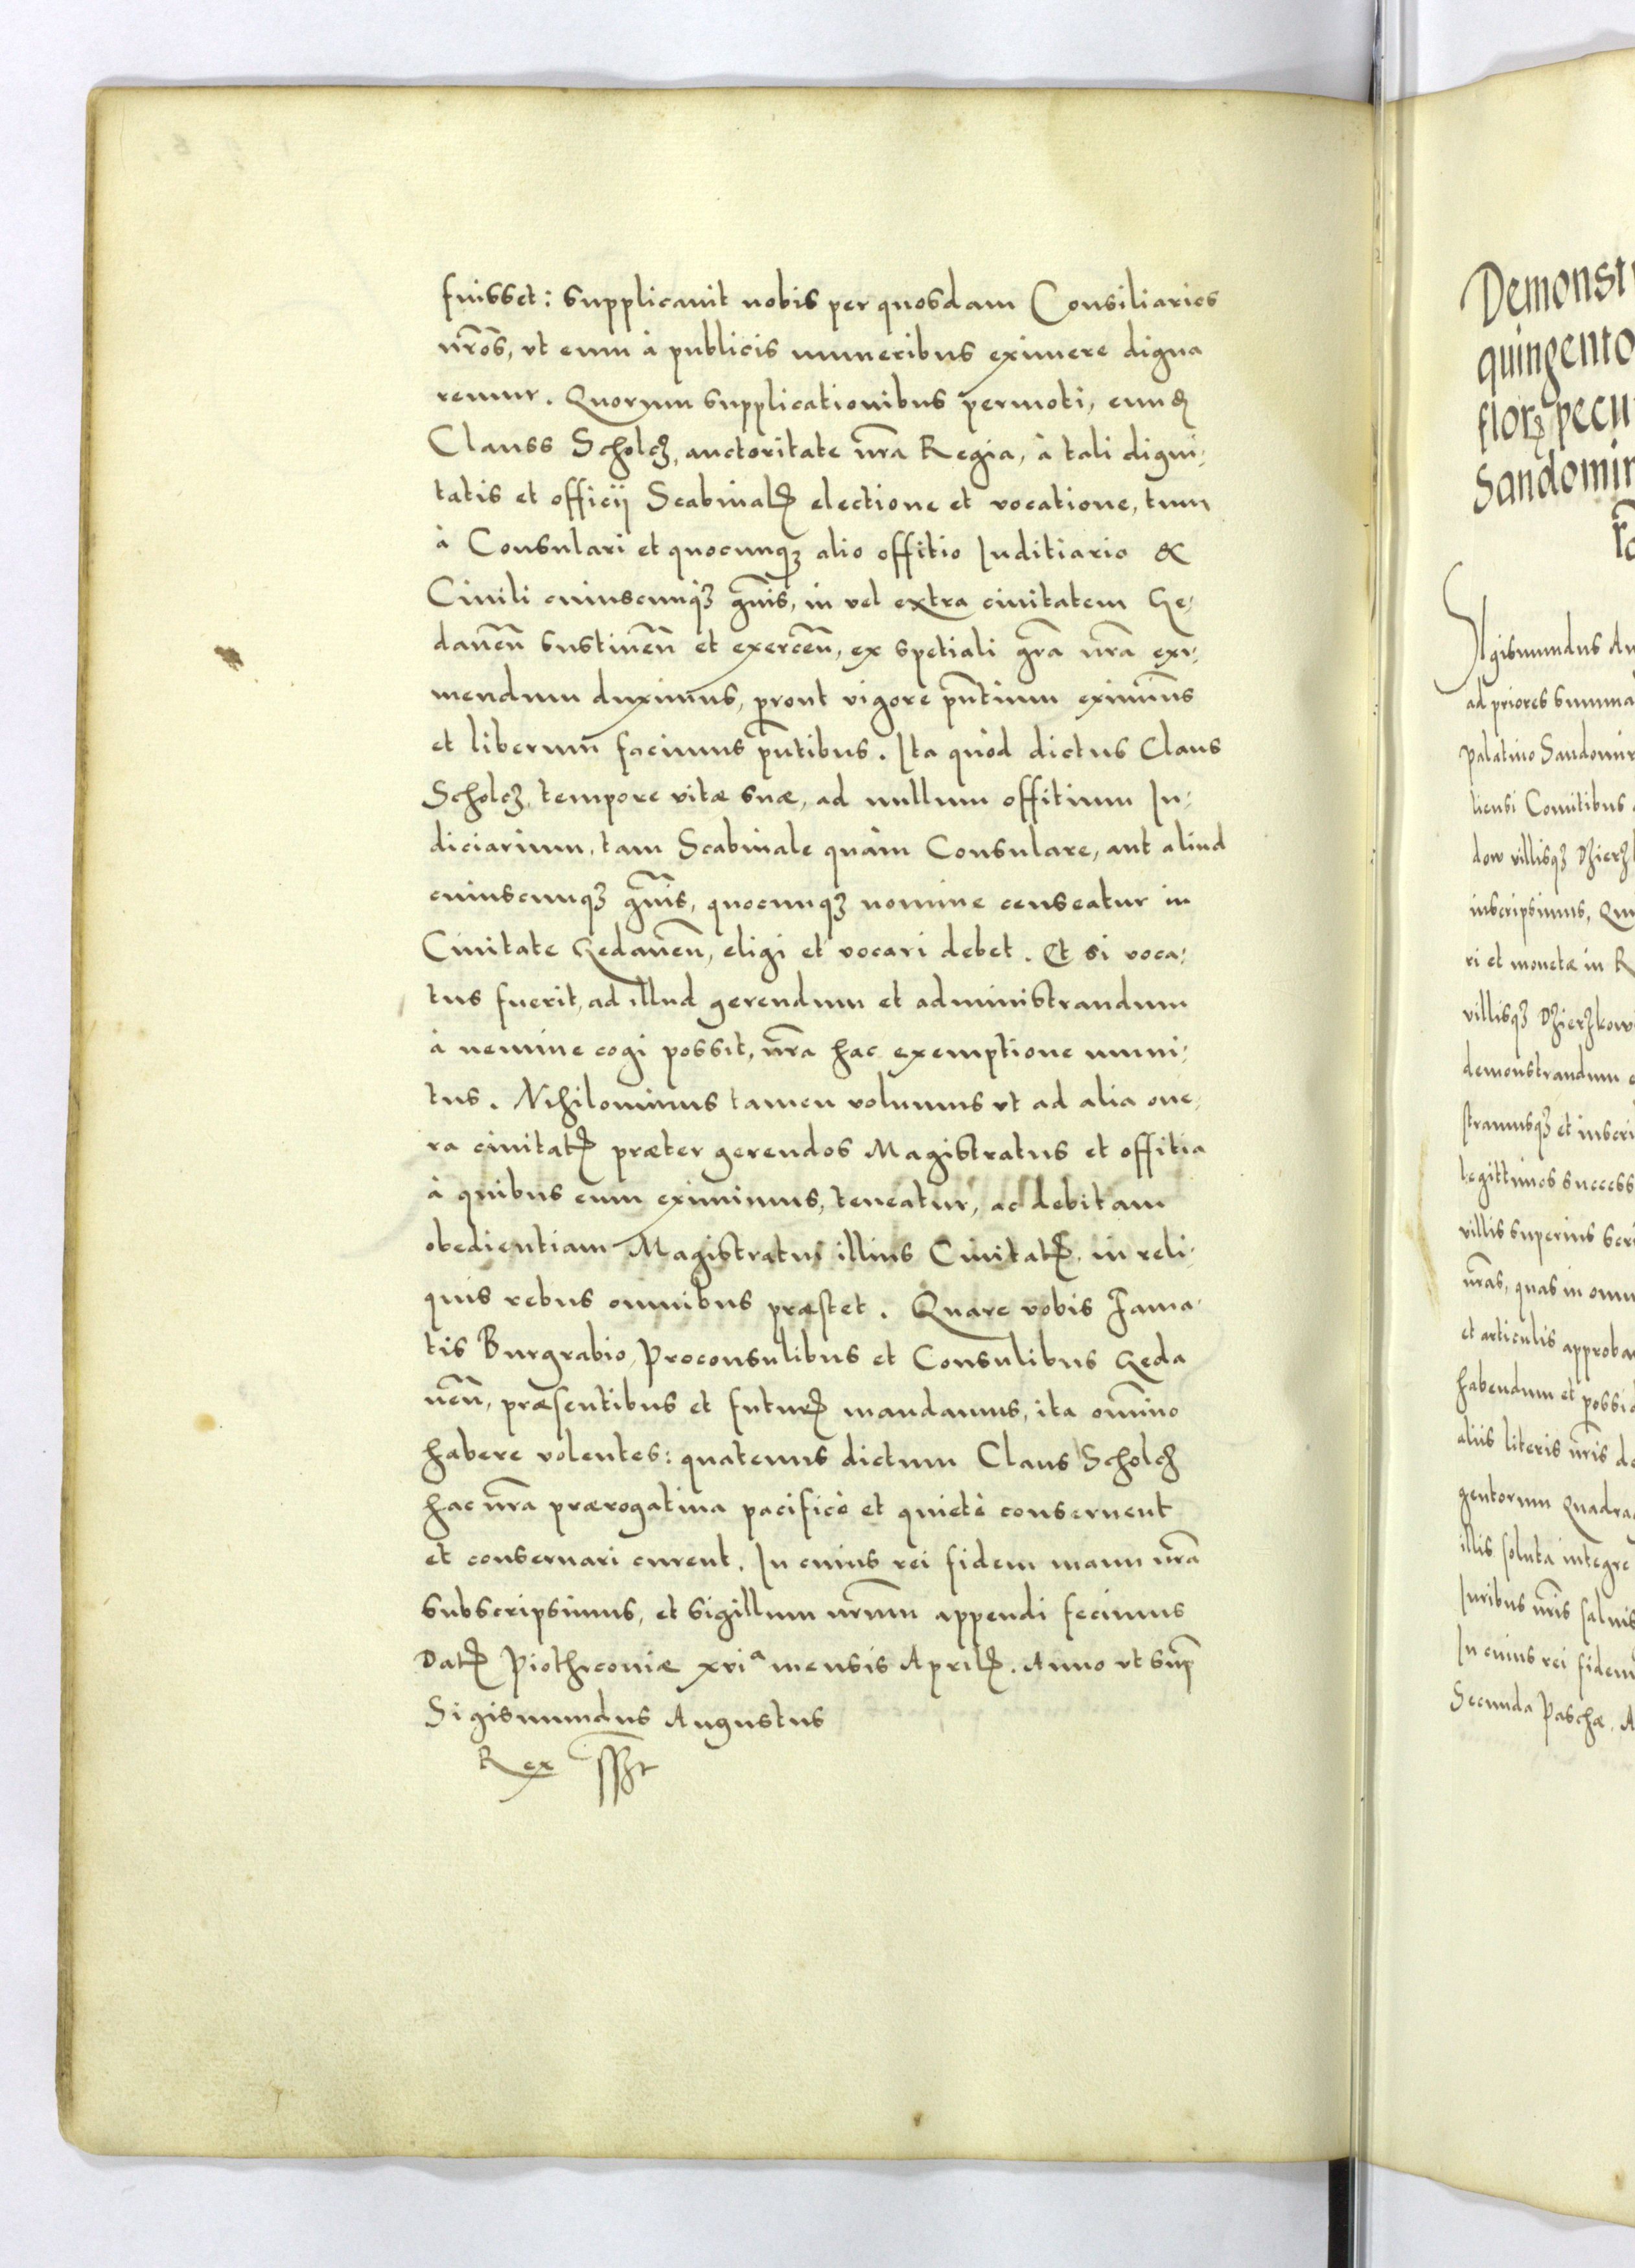 fuisset: supplicauit nobis per quosdam Consiliarios
nr̃os, vt eum à publicis muneribus eximere digna
remur. Quorum supplicationibus permoti, eundẽ
Clauss Scholcz, auctoritate nr̃a Regia, à tali digni-
tatis et officij Scabinalꝭ electione et vocatione, tum
à Consulari et quocunqꝫ alio offitio Iuditiario &
Ciuili cuiuscunqꝫ gñis, in vel extra ciuitatem Ge-
daneñ sustineñ et exerceñ, ex spetiali gr̃a nr̃a exi-
mendum duximus, prout vigore pñtium eximimꝰ
et liberum facimus pñtibus. Ita quòd dictus Claus
Scholcz, tempore vitæ suæ, ad nullum offitium Iu-
diciarium, tam Scabinale quàm Consulare, aut aliud
cuiuscunqꝫ gñis, quocunqꝫ nomine censeatur in
Ciuitate Gedaneñ, eligi et vocari debet. Et si voca-
tus fuerit, ad illud gerendum et administrandum
à nemine cogi possit, nr̃a hac exemptione muni-
tus. Nihilominus tamen volumus vt ad alia one-
ra ciuitatꝭ præter gerendos Magistratus et offitia
à quibus eum eximimus, teneatur, ac debitam
obedientiam Magistratui illius Ciuitatꝭ, in reli-
quis rebus omnibus præstet. Quare vobis Fama-
tis Burgrabio, Proconsulibus et Consulibus Geda
neñ, præsentibus et futurꝭ mandamus, ita om̃ino
habere volentes: quatenus dictum Claus Scholcz
hac nr̃a prærogatiua pacificè et quietè conseruent
et conseruari curent. In cuius rei fidem manu nr̃a
subscripsimus, et sigillum nr̃um appendi fecimus
Datꝭ Piothrconiæ xviª mensis Aprilꝭ. Anno vt sup̃
Sigismundus Augustus
Rex sst
Demonst
quingento
florꝝ pecu
Sandomir
gismundus Au
ad priores summa
Palatino Sandomir
liensi Comitibus
dow villisqꝫ Dzierz
inscripsimus, Qu
ri et monetæ in R
villisqꝫ Dzierzkow
demonstrandum
stramusqꝫ et inscri
legittimos success
villis superius scr
nr̃as, quas in omn
et articulis approba
habendum et possid
aliis literis nr̃is de
gentorum Quadra
illis soluta integre
Iuribus nr̃is saluis
In cuius rei fidem
Secunda Paschæ, A